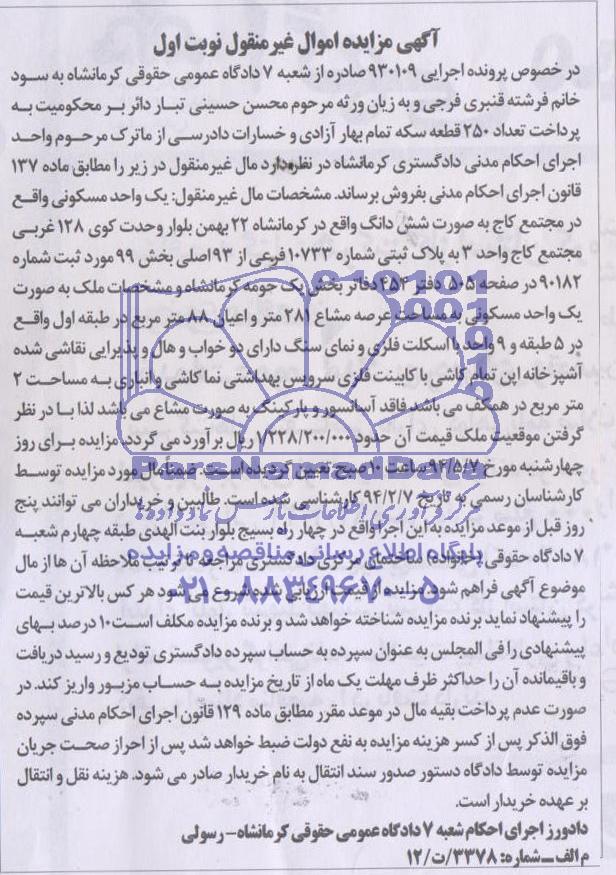 آگهی مزایده اموال غیرمنقول نوبت اول
در خصوص پرونده اجرایی ۹۳۰۱۰۹ صادره از شعبه ۷ دادگاه عمومی حقوقی کرمانشاه به سود
خانم فرشته قنبری فرجی و به زیان ورثه مرحوم محسن حسینی تبار دائر بر محکومیت به
پرداخت تعداد ۲۵۰ قطعه سکه تمام بهار آزادی و خسارات دادرسی از ماترک مرحوم واحد
اجرای احکام مدنی دادگستری کرمانشاه در نظر دارد مال غیرمنقول در زیر را مطابق ماده ۱۳۷
قانون اجرای احکام مدنی بفروش برساند. مشخصات مال غیرمنقول: یک واحد مسکونی واقع
در مجتمع کاج به صورت شش دانگ واقع در کرمانشاه ۲۲ بهمن بلوار وحدت کوی ۱۲۸ غربی
مجتمع کاج واحد ۳ به پلاک ثبتی شماره ۱۰۷۳۳ فرعی از ۹۳ اصلی بخش ۹۹ مورد ثبت شماره
۹۰۱۸۲ در صفحه ۵۰۵ دفتر ۴۵۴ دفاتر بخش یک حومه کرمانشاه و مشخصات ملک به صورت
یک واحد مسکونی به مساحت عرصه مشاع ۲۸۱ متر و اعیان ۸۸ متر مربع در طبقه اول واقع
در ۵ طبقه و ۹ واحد با اسکلت فلزی و نمای سنگ دارای دو خواب و هال و پذیرایی نقاشی شده
آشپزخانه اپن تمام کاشی با کابینت فلزی سرویس بهداشتی نما کاشی و انباری به مساحت ۲
متر مربع در همکف می باشد فاقد آسانسور و پارکینگ به صورت مشاع می باشد لذا با در نظر
گرفتن موقعیت ملک قیمت آن حدود ۱/۲۲۸/۲۰۰/۰۰۰ ریال برآورد می گردد. مزایده برای روز
چهارشنبه مورخ ۹۴/۵/۷ ساعت ۱۰ صبح تعیین گردیده است. ضمناً مال مورد مزایده توسط
کارشناسان رسمی به تاریخ ۹۴/۲/۷ کارشناسی شده است. طالبین و خریداران می توانند پنج
روز قبل از موعد مزایده به این اجرا واقع در چهار راه بسیج بلوار بنت الهدی طبقه چهارم شعبه
۷ دادگاه حقوقی (خانواده) ساختمان مرکزی دادگستری مراجعه تا ترتیب ملاحظه آن ها از مال
موضوع آگهی فراهم شود. مزایده از قیمت ارزیابی شده شروع می شود هر کس بالاترین قیمت
را پیشنهاد نماید برنده مزایده شناخته خواهد شد و برنده مزایده مکلف است ۱۰ درصد بهای
پیشنهادی را فی المجلس به عنوان سپرده به حساب سپرده دادگستری تودیع و رسید دریافت
و باقیمانده آن را حداکثر ظرف مهلت یک ماه از تاریخ مزایده به حساب مزبور واریز کند. در
صورت عدم پرداخت بقیه مال در موعد مقرر مطابق ماده ۱۲۹ قانون اجرای احکام مدنی سپرده
فوق الذکر پس از کسر هزینه مزایده به نفع دولت ضبط خواهد شد پس از احراز صحت جریان
مزایده توسط دادگاه دستور صدور سند انتقال به نام خریدار صادر می شود. هزینه نقل و انتقال
بر عهده خریدار است.
دادورز اجرای احکام شعبه ۷ دادگاه عمومی حقوقی کرمانشاه- رسولی
م الف ــ شماره: ۳۳۷۸/ت/۱۲
ParsNamadData
مرکز فرآوری اطلاعات پارس نماد داده ها
پایگاه اطلاع رسانی مناقصه و مزایده
۰۲۱-۸۸۳۴۹۶۷۰-۵